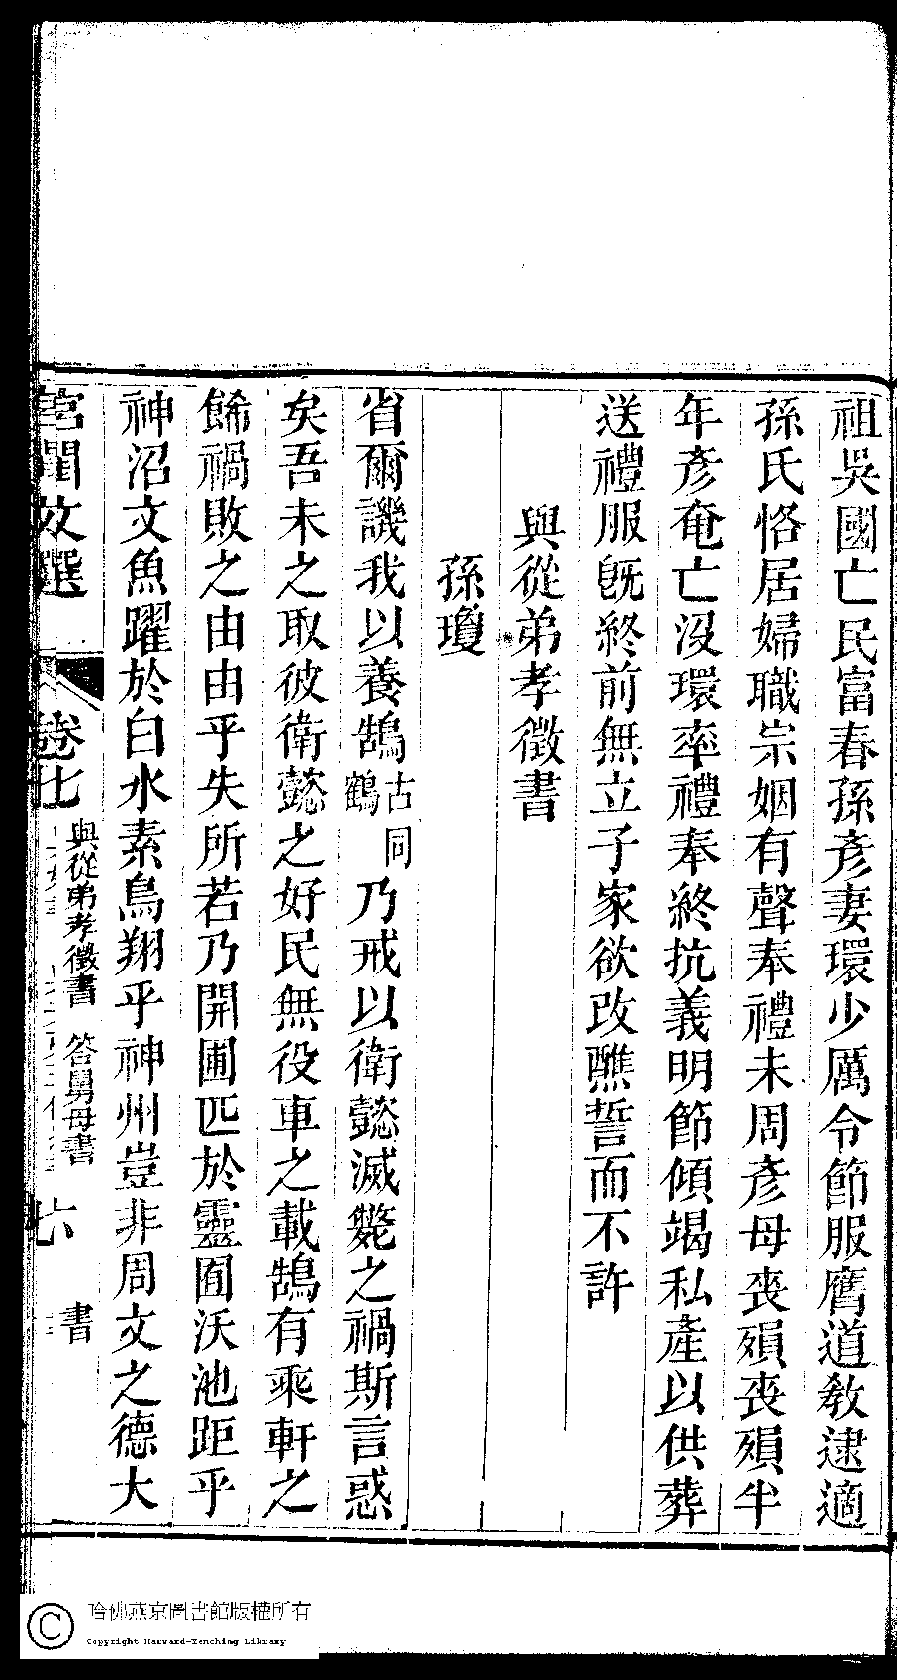 祖吳國亡民富春孫彥妻環少厲令節服膺道敎逮適
孫氏恪居婦職宗姻有聲奉禮未周彥母喪殞喪殞半
年彥奄亡沒環率禮奉終抗義明節傾竭私產以供葬
送禮服旣終前無立子家欲改醮誓而不許
與從弟孝徵書
孫瓊
省爾譏我以養鵠古鶴同乃戒以衛懿滅斃之禍斯言惑
矣吾未之取彼衛懿之好民無役車之載鵠有乘軒之
餙禍敗之由由乎失所若乃開圃匹於靈囿沃池距乎
神沼文魚躍於白水素鳥翔乎神州豈非周文之德大
宮閨文選 卷七 與從弟孝徵書 答舅母書 六 書
哈佛燕京圖書館版權所有
Copyright Harvard-Yenching Library